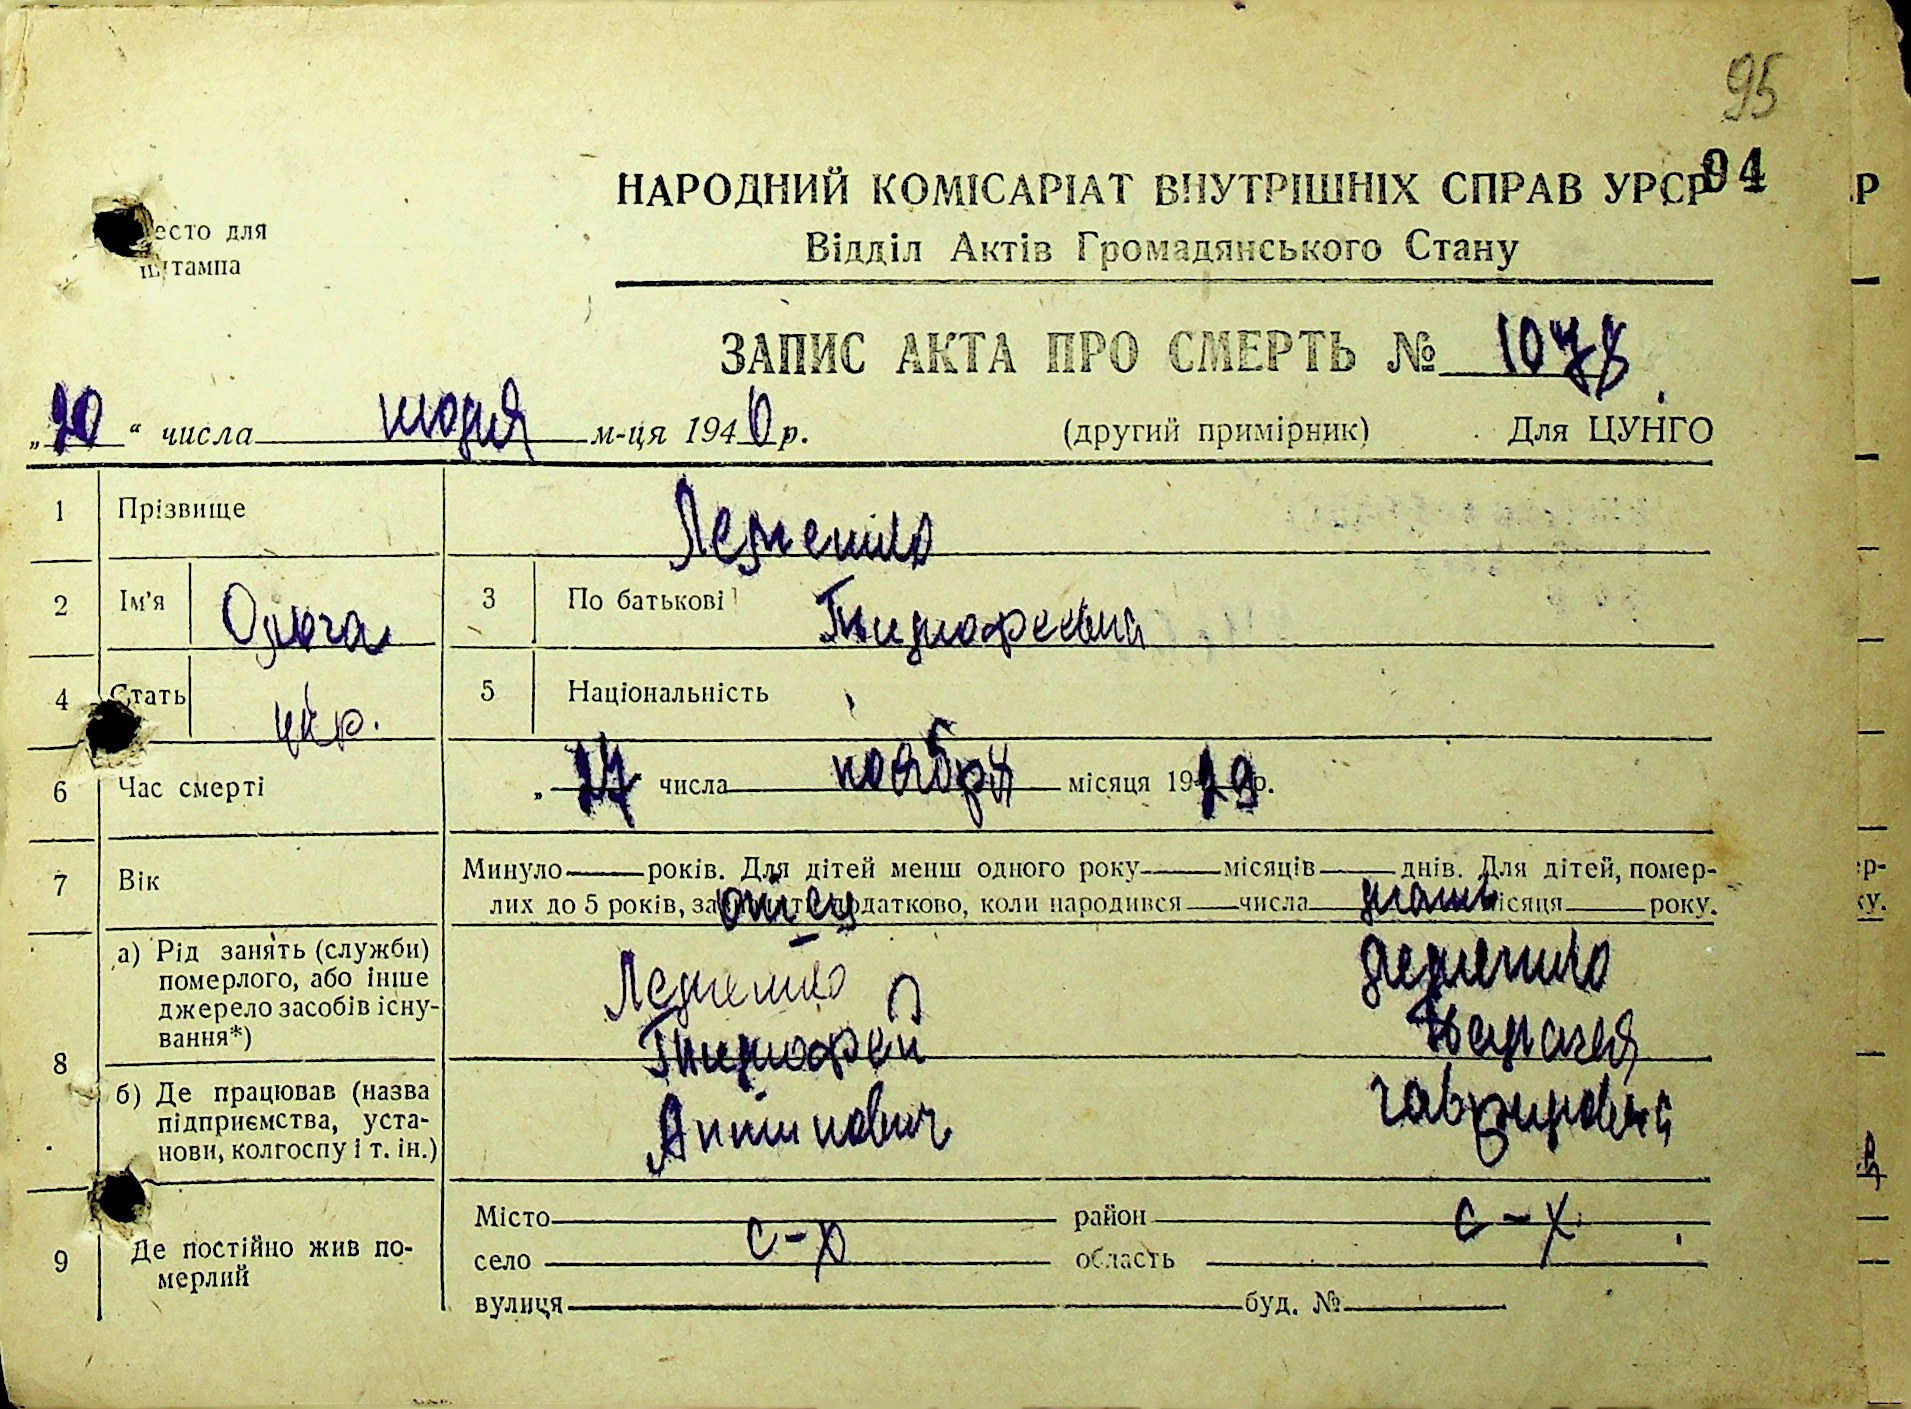 95
94
НАРОДНИЙ КОМІСАРІАТ ВНУТРІШНІХ СПРАВ УРСР
есто для
штампа
Відділ Актів Громадянського Стану
ЗАПИС АКТА ПРО СМЕРТЬ № 1078
„20“ числа июля м-ця 1940 р. (другий примірник) Для ЦУНГО
1 Прізвище
2 Ім'я Ольга 3 По батькові Тимофеевна
4 Стать укр. 5 Національність
6 Час смерті „27 числа ноября місяця 1929 р.
7 Вік Минуло років. Для дітей менш одного року місяців днів. Для дітей, помер-
лих до 5 років, додатково, коли народився числа місяця року.
отец мать
8 а) Рід занять (служби)
померлого, або інше
джерело засобів існу-
вання*)
Тимофей
б) Де працював (назва
підприємства, уста-
нови, колгоспу і т. ін.)
Антипович Гавриловна
9 Де постійно жив по-
мерлий
Місто район
с-х с-х
село область
вулиця буд. №